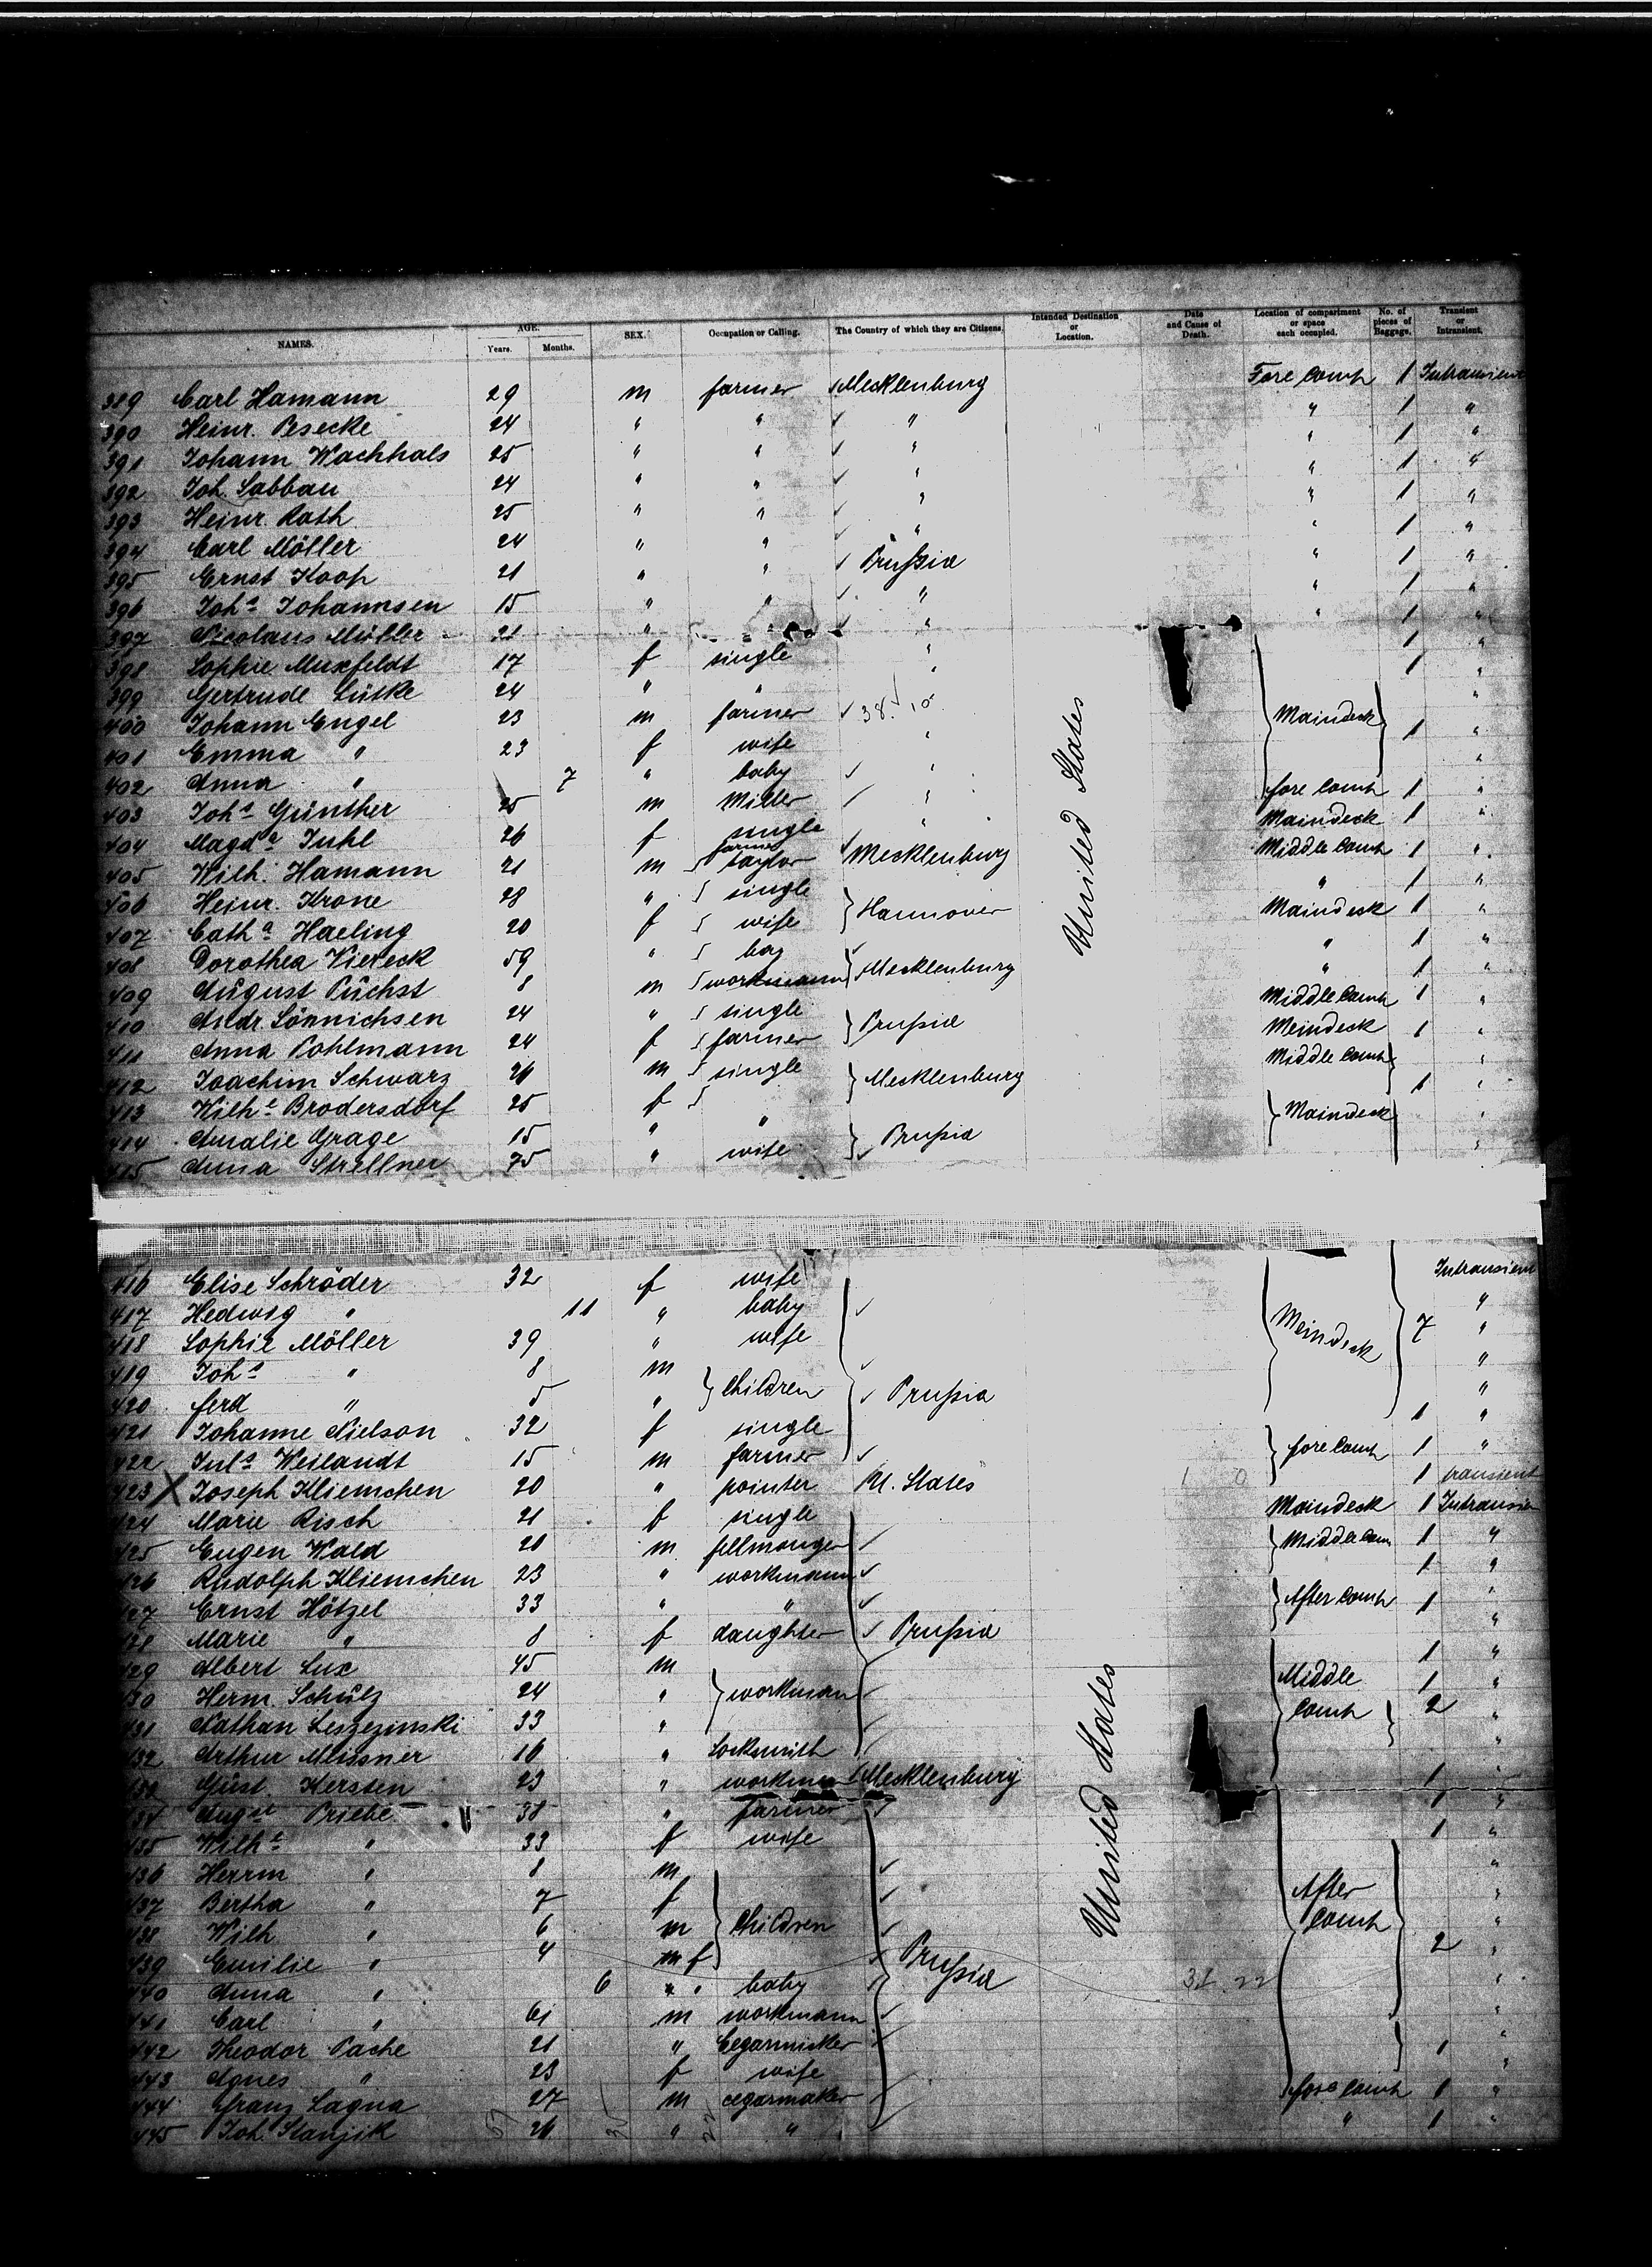 NAMES. AGE. Years. Months. SEX. Occupation or Calling. The Country of which they are Citizens. Intended Destination or Location. Date and Cause of Death. Location of compartment or space each occupied. No. of pieces of Baggage. Transient or Intransient.
389 Carl Hamann 29 m farmer Mecklenburg Fore Comp 1 Intransient
390 Heinr. Besecke 24 " " " " 1 "
391 Johann Wachhals 25 " " " " 1 "
392 Joh. Sabbau 24 " " " " 1 "
393 Heinr. Rath 25 " " " " 1 "
394 Carl Möller 24 " " " " 1 "
395 Ernst Koop 21 " " Prußia " 1 "
396 Joh.s Johannsen 15 " " " " 1 "
397 Nicolaus Müller 21 " " " " 1 "
398 Sophie Muxfeldt 17 f single " 1 "
399 Gertrude Lütke 24 " " " 1 "
400 Johann Engel 23 m farmer Maindeck
401 Emma " 23 f wife " 1 "
402 Anna " 7 " baby " "
403 Joh.s Günther 25 m Miller " fore Comp 1 "
404 Magd.a Juhl 26 f single " Maindeck 1 "
405 Wilh. Hamann 21 m farmer taylor Mecklenburg Middle Comp 1 "
406 Heinr. Krone 28 " single " 1 "
407 Cath.a Haeling 20 f wife Hannover Maindeck 1 "
408 Dorothea Viereck 59 " boy " 1 "
409 August Püchst 8 m workmann Mecklenburg " 1 "
410 Andr. Sönnichsen 24 " single Middle Comp 1 "
411 Anna Pohlmann 24 f farmer Prußia Meindeck 1 "
412 Joachim Schwarz 21 m single Middle Comp "
413 Wilh.e Brodersdorf 25 f Mecklenburg 1 "
414 Amalie Grage 15 " " Maindeck "
415 Anna Strellner 75 " wife Prußia "
United States
416 Elise Schröder 32 f wife Intransient
417 Hedwig " 11 " baby "
418 Sophie Möller 39 " wife Meindeck 7 "
419 Joh.s " 8 m "
420 ferd " 5 " Children Prußia "
421 Johanne Nielson 32 f single 1 "
422 Jul.s Weilandt 15 m farmer fore Comp 1 "
423 X Joseph Kliemchen 20 " pointer U. States 1 transient
424 Marie Risch 21 f single Maindeck 1 Intransien
425 Eugen Wald 20 m fellmonger Middle Com 1 "
426 Rudolph Kliemchen 23 " workmann 1 "
427 Ernst Hötzel 33 " " After Comp 1 "
428 Marie " 8 f daughter Prußia "
429 Albert Lux 45 m 1 "
430 Herm. Schulz 24 " workman Middle 1 "
431 Nathan Leszezinski 33 " Comp 2 "
432 Arthur Meissner 16 " Locksmith "
433 Gust Kersten 23 " workman Mecklenburg 1 "
434 Aug.st Priebe 38 " farmer 1 "
435 Wilh.e " 33 f wife 1 "
436 Herrm " 8 m "
437 Bertha " 7 f After "
438 Wilh. " 6 m Children Comp "
439 Emilie " 4 m f Prußia 2 "
440 Anna " 6 " baby "
441 Carl " 61 m workmann "
442 Theodor Pache 21 " Cegarmicker 1 "
443 Agnes " 23 f wife "
444 Franz Lagua 27 m cegarmaker fore Comp 1 "
445 Joh. Stanjik 26 " " " 1 "
United States